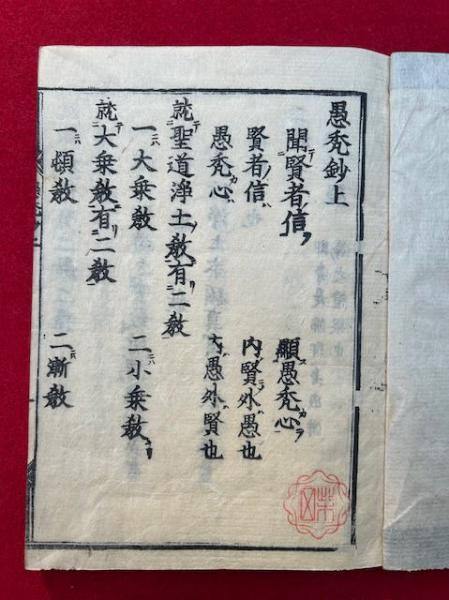 愚禿鈔上
聞賢者信 顯愚禿心
賢者信 内賢外愚也
愚禿心 内愚外賢也
就聖道淨土教有二教
一大乘教 二小乘教
就大乘教有二教
一頓教 二漸教